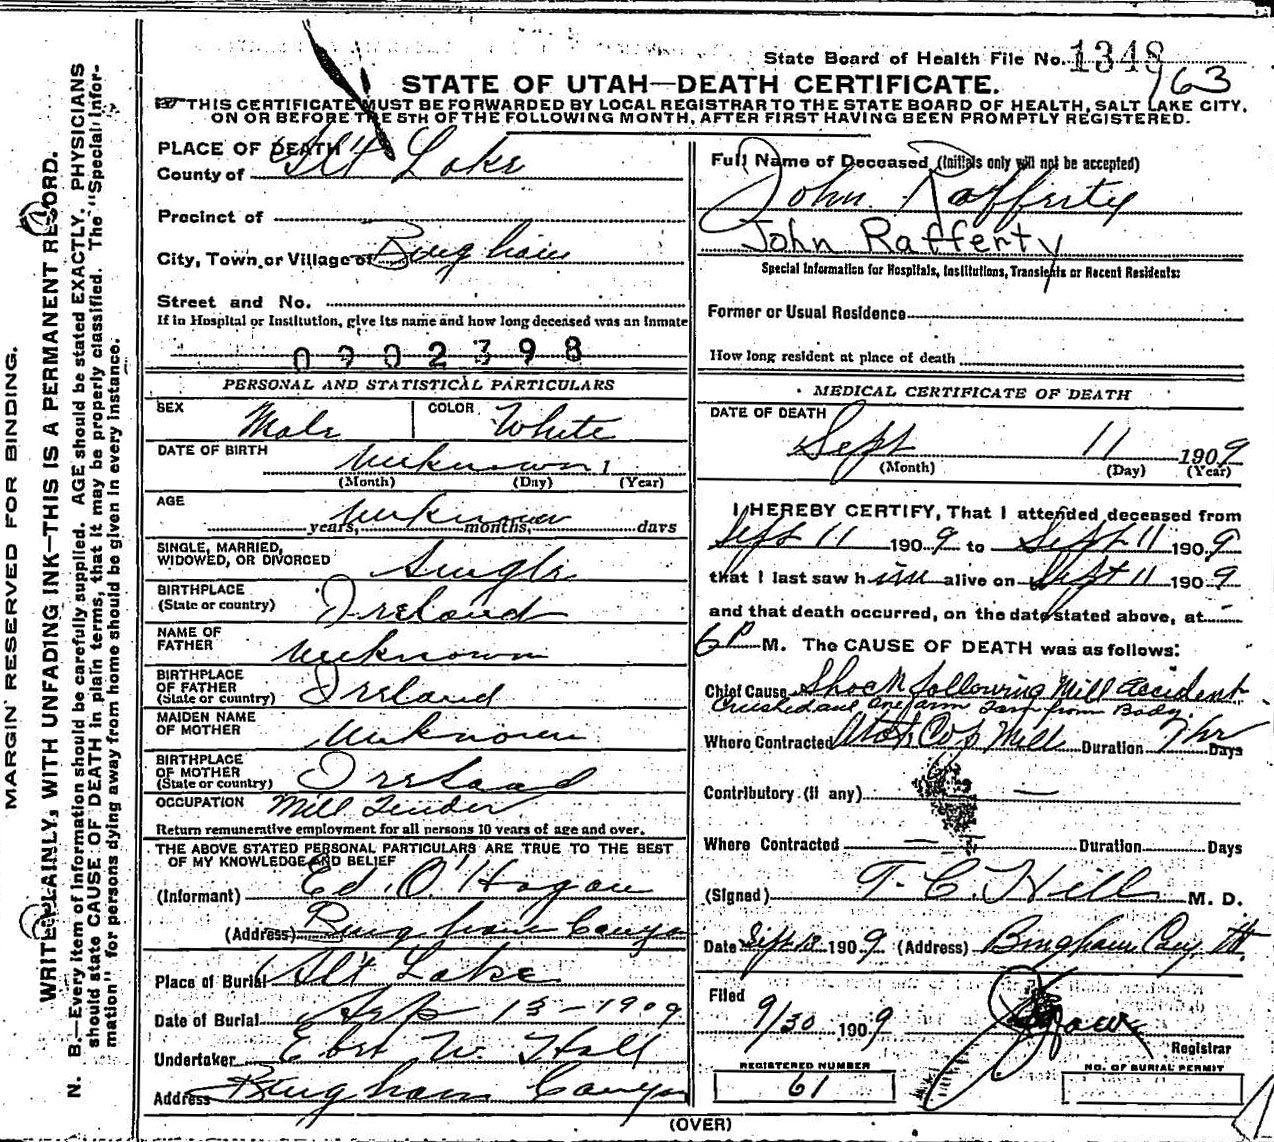 State Board of Health File No. 1348
963
STATE OF UTAH—DEATH CERTIFICATE.
THIS CERTIFICATE MUST BE FORWARDED BY LOCAL REGISTRAR TO THE STATE BOARD OF HEALTH, SALT LAKE CITY,
ON OR BEFORE THE 5TH OF THE FOLLOWING MONTH, AFTER FIRST HAVING BEEN PROMPTLY REGISTERED.
MARGIN RESERVED FOR BINDING.
WRITE PLAINLY, WITH UNFADING INK—THIS IS A PERMANENT RECORD.
N. B.—Every item of information should be carefully supplied. AGE should be stated EXACTLY, PHYSICIANS
should state CAUSE OF DEATH in plain terms, that it may be properly classified. The "Special Infor-
mation" for persons dying away from home should be given in every instance.
PLACE OF DEATH
County of Slt Lake
Precinct of
City, Town or Village of Bingham
Street and No.
If in Hospital or Institution, give its name and how long deceased was an inmate
0902398
PERSONAL AND STATISTICAL PARTICULARS
SEX Male COLOR White
DATE OF BIRTH unknown
(Month) (Day) (Year)
AGE unknown
years, months, days
SINGLE, MARRIED,
WIDOWED, OR DIVORCED Single
BIRTHPLACE
(State or country) Ireland
NAME OF
FATHER unknown
BIRTHPLACE
OF FATHER
(State or country) Ireland
MAIDEN NAME
OF MOTHER unknown
BIRTHPLACE
OF MOTHER
(State or country) Ireland
OCCUPATION Mill Tender
Return remunerative employment for all persons 10 years of age and over.
THE ABOVE STATED PERSONAL PARTICULARS ARE TRUE TO THE BEST
OF MY KNOWLEDGE AND BELIEF
(Informant) Ed. O'Hogan
(Address) Bingham Canyon
Place of Burial Slt Lake
Date of Burial Sep 13-1909
Undertaker W. Hall
Address Bingham Canyon
Full Name of Deceased (Initials only will not be accepted)
John Rafferty
John Rafferty
Special Information for Hospitals, Institutions, Transients or Recent Residents:
Former or Usual Residence
How long resident at place of death
MEDICAL CERTIFICATE OF DEATH
DATE OF DEATH
Sept 11 1909
(Month) (Day) (Year)
I HEREBY CERTIFY, That I attended deceased from
Sept 11 1909 to Sept 11 1909
that I last saw him alive on Sept 11 1909
and that death occurred, on the date stated above, at
6 P M. The CAUSE OF DEATH was as follows:
Chief Cause Shock following Mill accident
Crushed and one arm torn from Body.
Where Contracted Utah Cop Mill Duration 7 hr Days
Contributory (if any) —
Where Contracted — Duration Days
(Signed) T. C. Hill M. D.
Date Sept 12 1909 (Address) Bingham Cany Ut
Filed
9/30 1909
Registrar
REGISTERED NUMBER
61
NO. OF BURIAL PERMIT
(OVER)